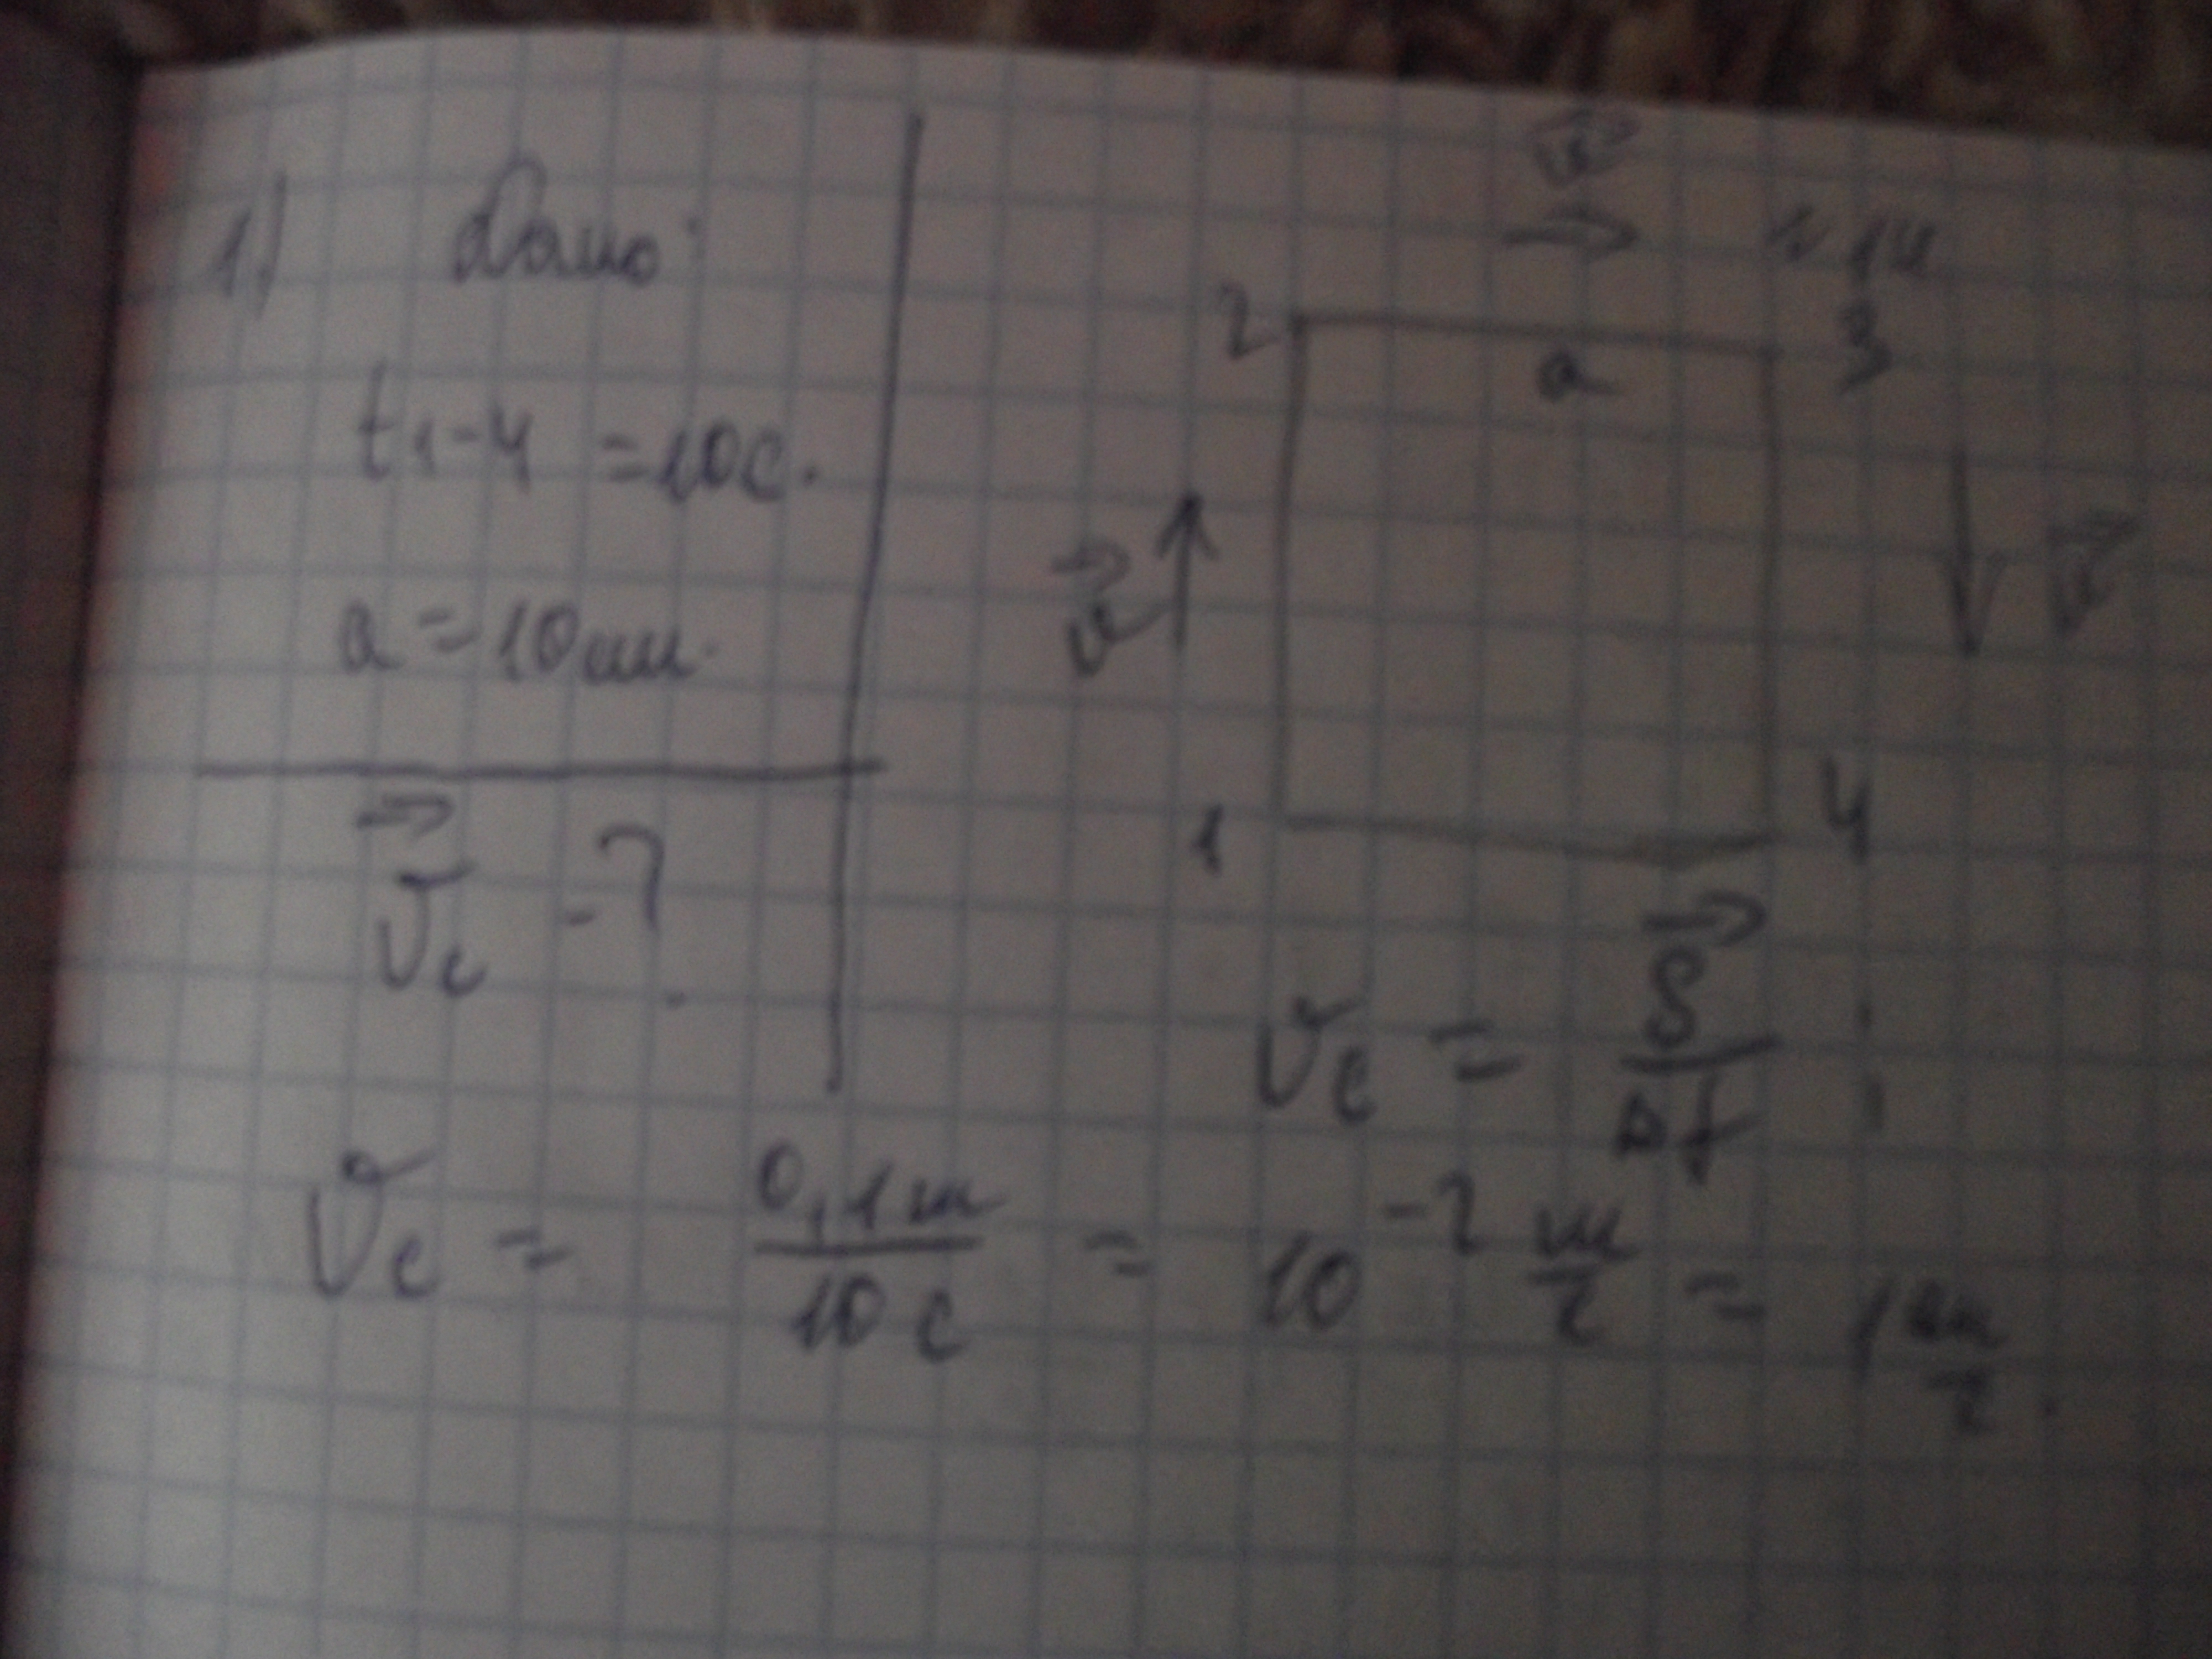 1) Дано:
t₁₋₄ = 10с.
a = 10см.
v⃗с - ?
v⃗
2 3
a
v⃗ v⃗
1 4
vс = S⃗/Δt ;
vс = 0,1м/10с = 10⁻² м/с = 1 см/с.